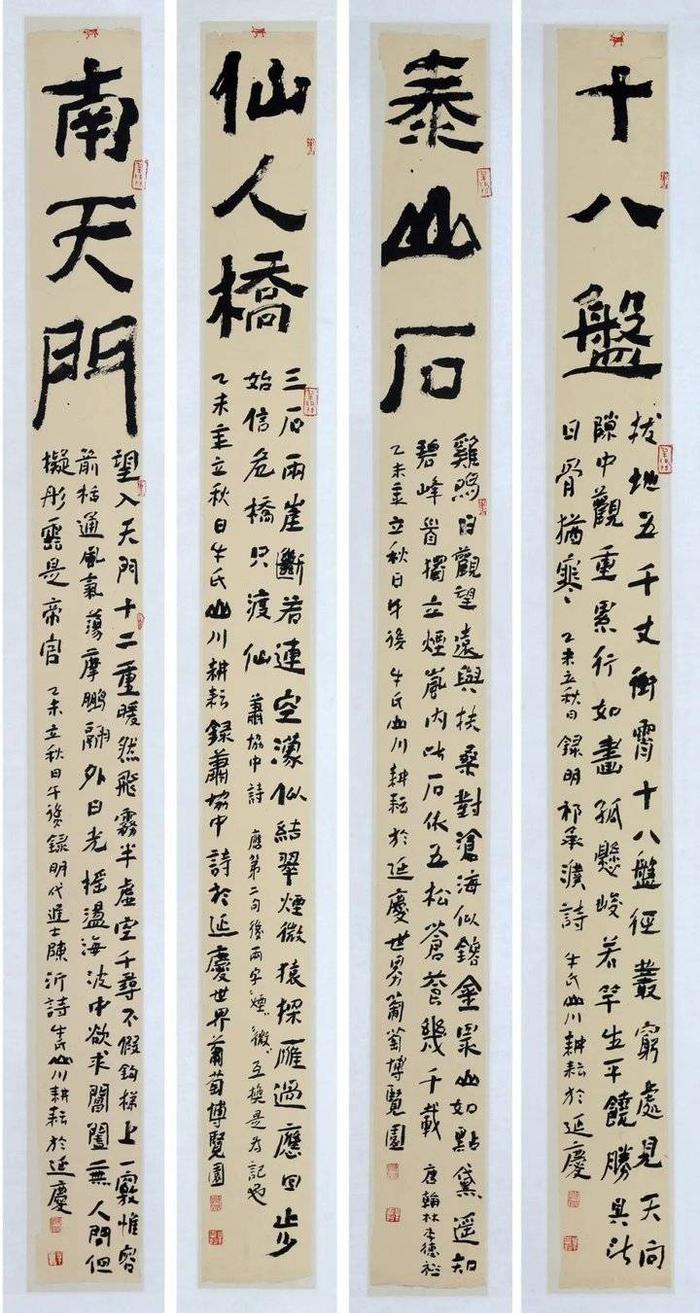 十八盤
拔地五千丈衝霄十八盤徑叢窮處見天向
隙中觀重累行如畫孤懸峻若竿生平饒勝具此
日骨猶寒 乙未立秋日錄明祁承濮詩 牛氏山川耕耘於延慶
泰山石
雞鳴日觀望遠與扶桑對滄海似鎔金眾山如點黛遙知
碧峰首獨立煙嵐內此石依五松蒼蒼幾千載 唐翰林李德裕
乙未立秋日午後 牛氏山川耕耘於延慶世界葡萄博覽園
仙人橋
三石兩崖斷若連空濛似結翠煙微猿探雁過應回步
始信危橋只渡仙 蕭協中詩 應第二句後兩字煙微互換是為記也
乙未立秋日牛氏山川耕耘錄蕭協中詩於延慶世界葡萄博覽園
南天門
望入天門十二重暖然飛霧半虛空千尋不假鉤梯上一竅惟容
箭栝通風氣蕩摩鵬翮外日光搖盪海波中欲求閶闔無人問但
擬彤雲是帝宮 乙未立秋日午後錄明代進士陳沂詩牛氏山川耕耘於延慶